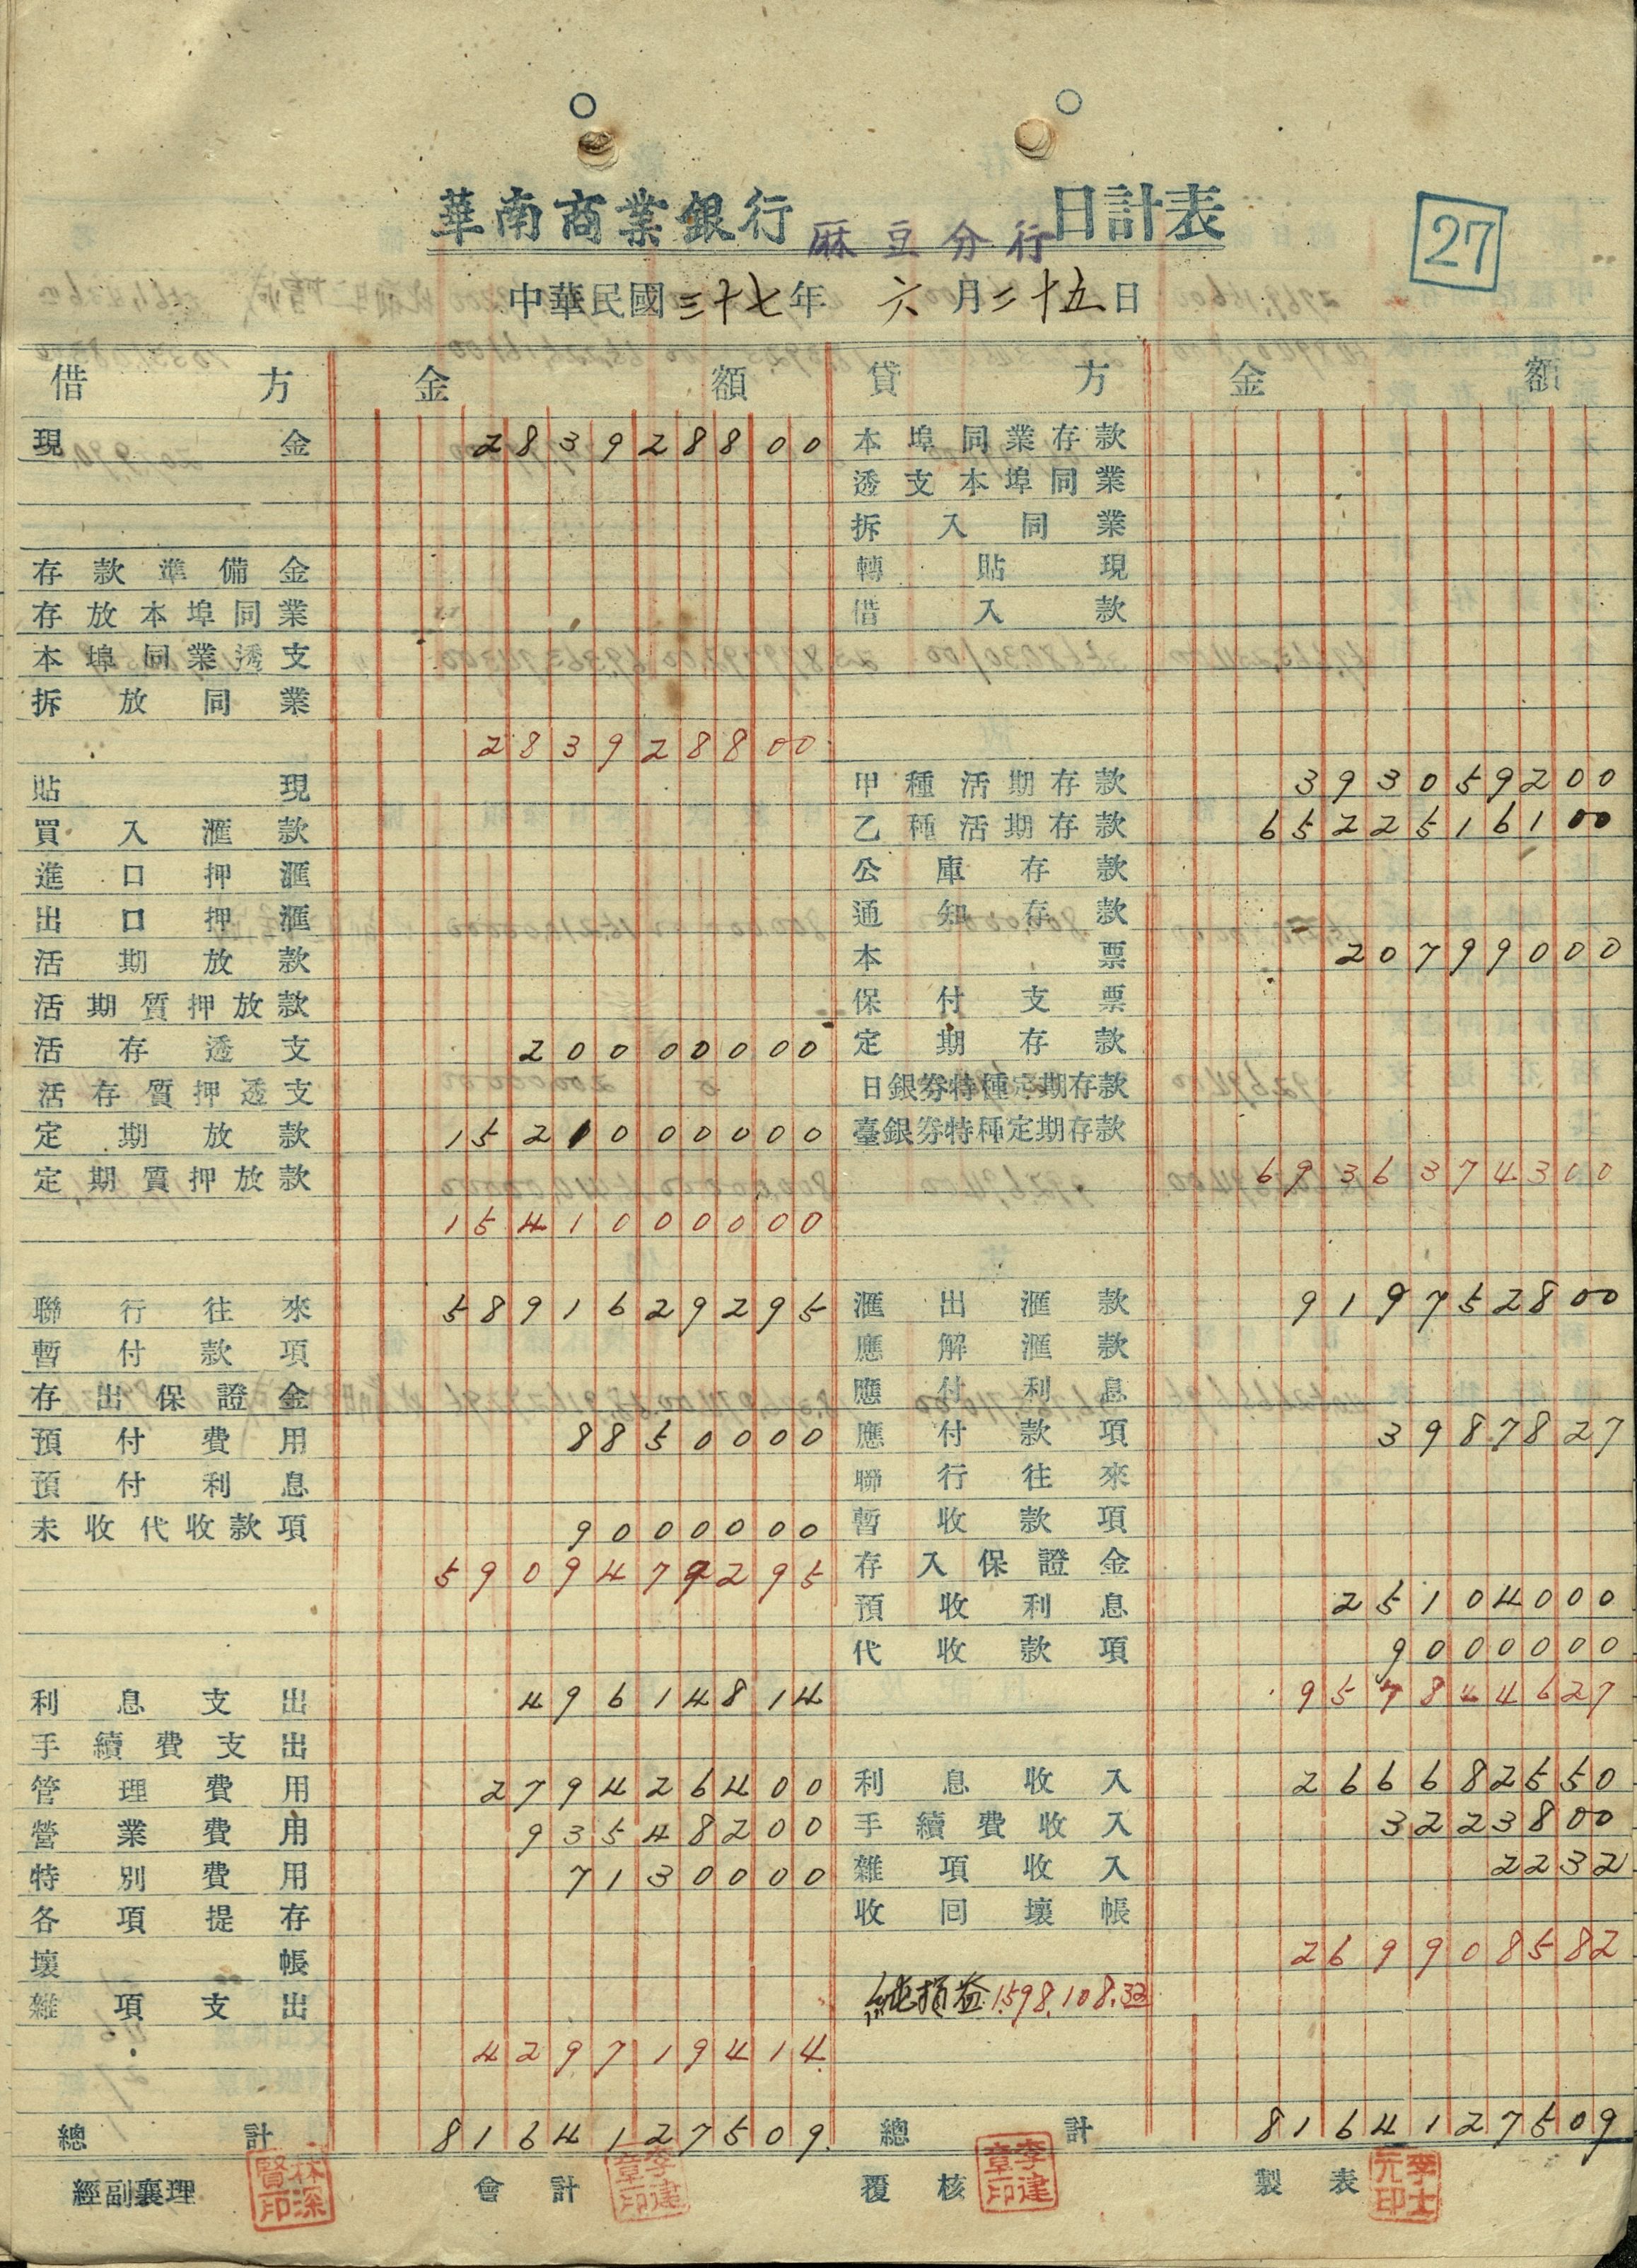 華南商業銀行 麻豆分行 日計表
27
中華民國三十七年 六月二十五日
借方 金額 貸方 金額
現金 283928800 本埠同業存款
透支本埠同業
拆入同業
存款準備金 轉貼現
存放本埠同業 借入款
本埠同業透支
拆放同業
283928800
貼現 甲種活期存款 393059200
買入滙款 乙種活期存款 6522516100
進口押滙 公庫存款
出口押滙 通知存款
活期放款 本票 20799000
活期質押放款 保付支票
活存透支 20000000 定期存款
活存質押透支 日銀券特種定期存款
定期放款 1521000000 臺銀券特種定期存款
定期質押放款 6936374300
1541000000
聯行往來 5891629295 滙出滙款 919752800
暫付款項 應解滙款
存出保證金 應付利息
預付費用 8850000 應付款項 3987827
預付利息 聯行往來
未收代收款項 9000000 暫收款項
5909479295 存入保證金
預收利息 25104000
代收款項 9000000
利息支出 49614814 957844627
手續費支出
管理費用 279426400 利息收入 266682550
營業費用 93548200 手續費收入 3223800
特別費用 7130000 雜項收入 2232
各項提存 收回壞帳
壞帳 269908582
雜項支出 純損益 1.598.108.32
429719414
總計 8164127509 總計 8164127509
經副襄理 林深賢印 會計 李建章印 覆核 李建章印 製表 李士元印